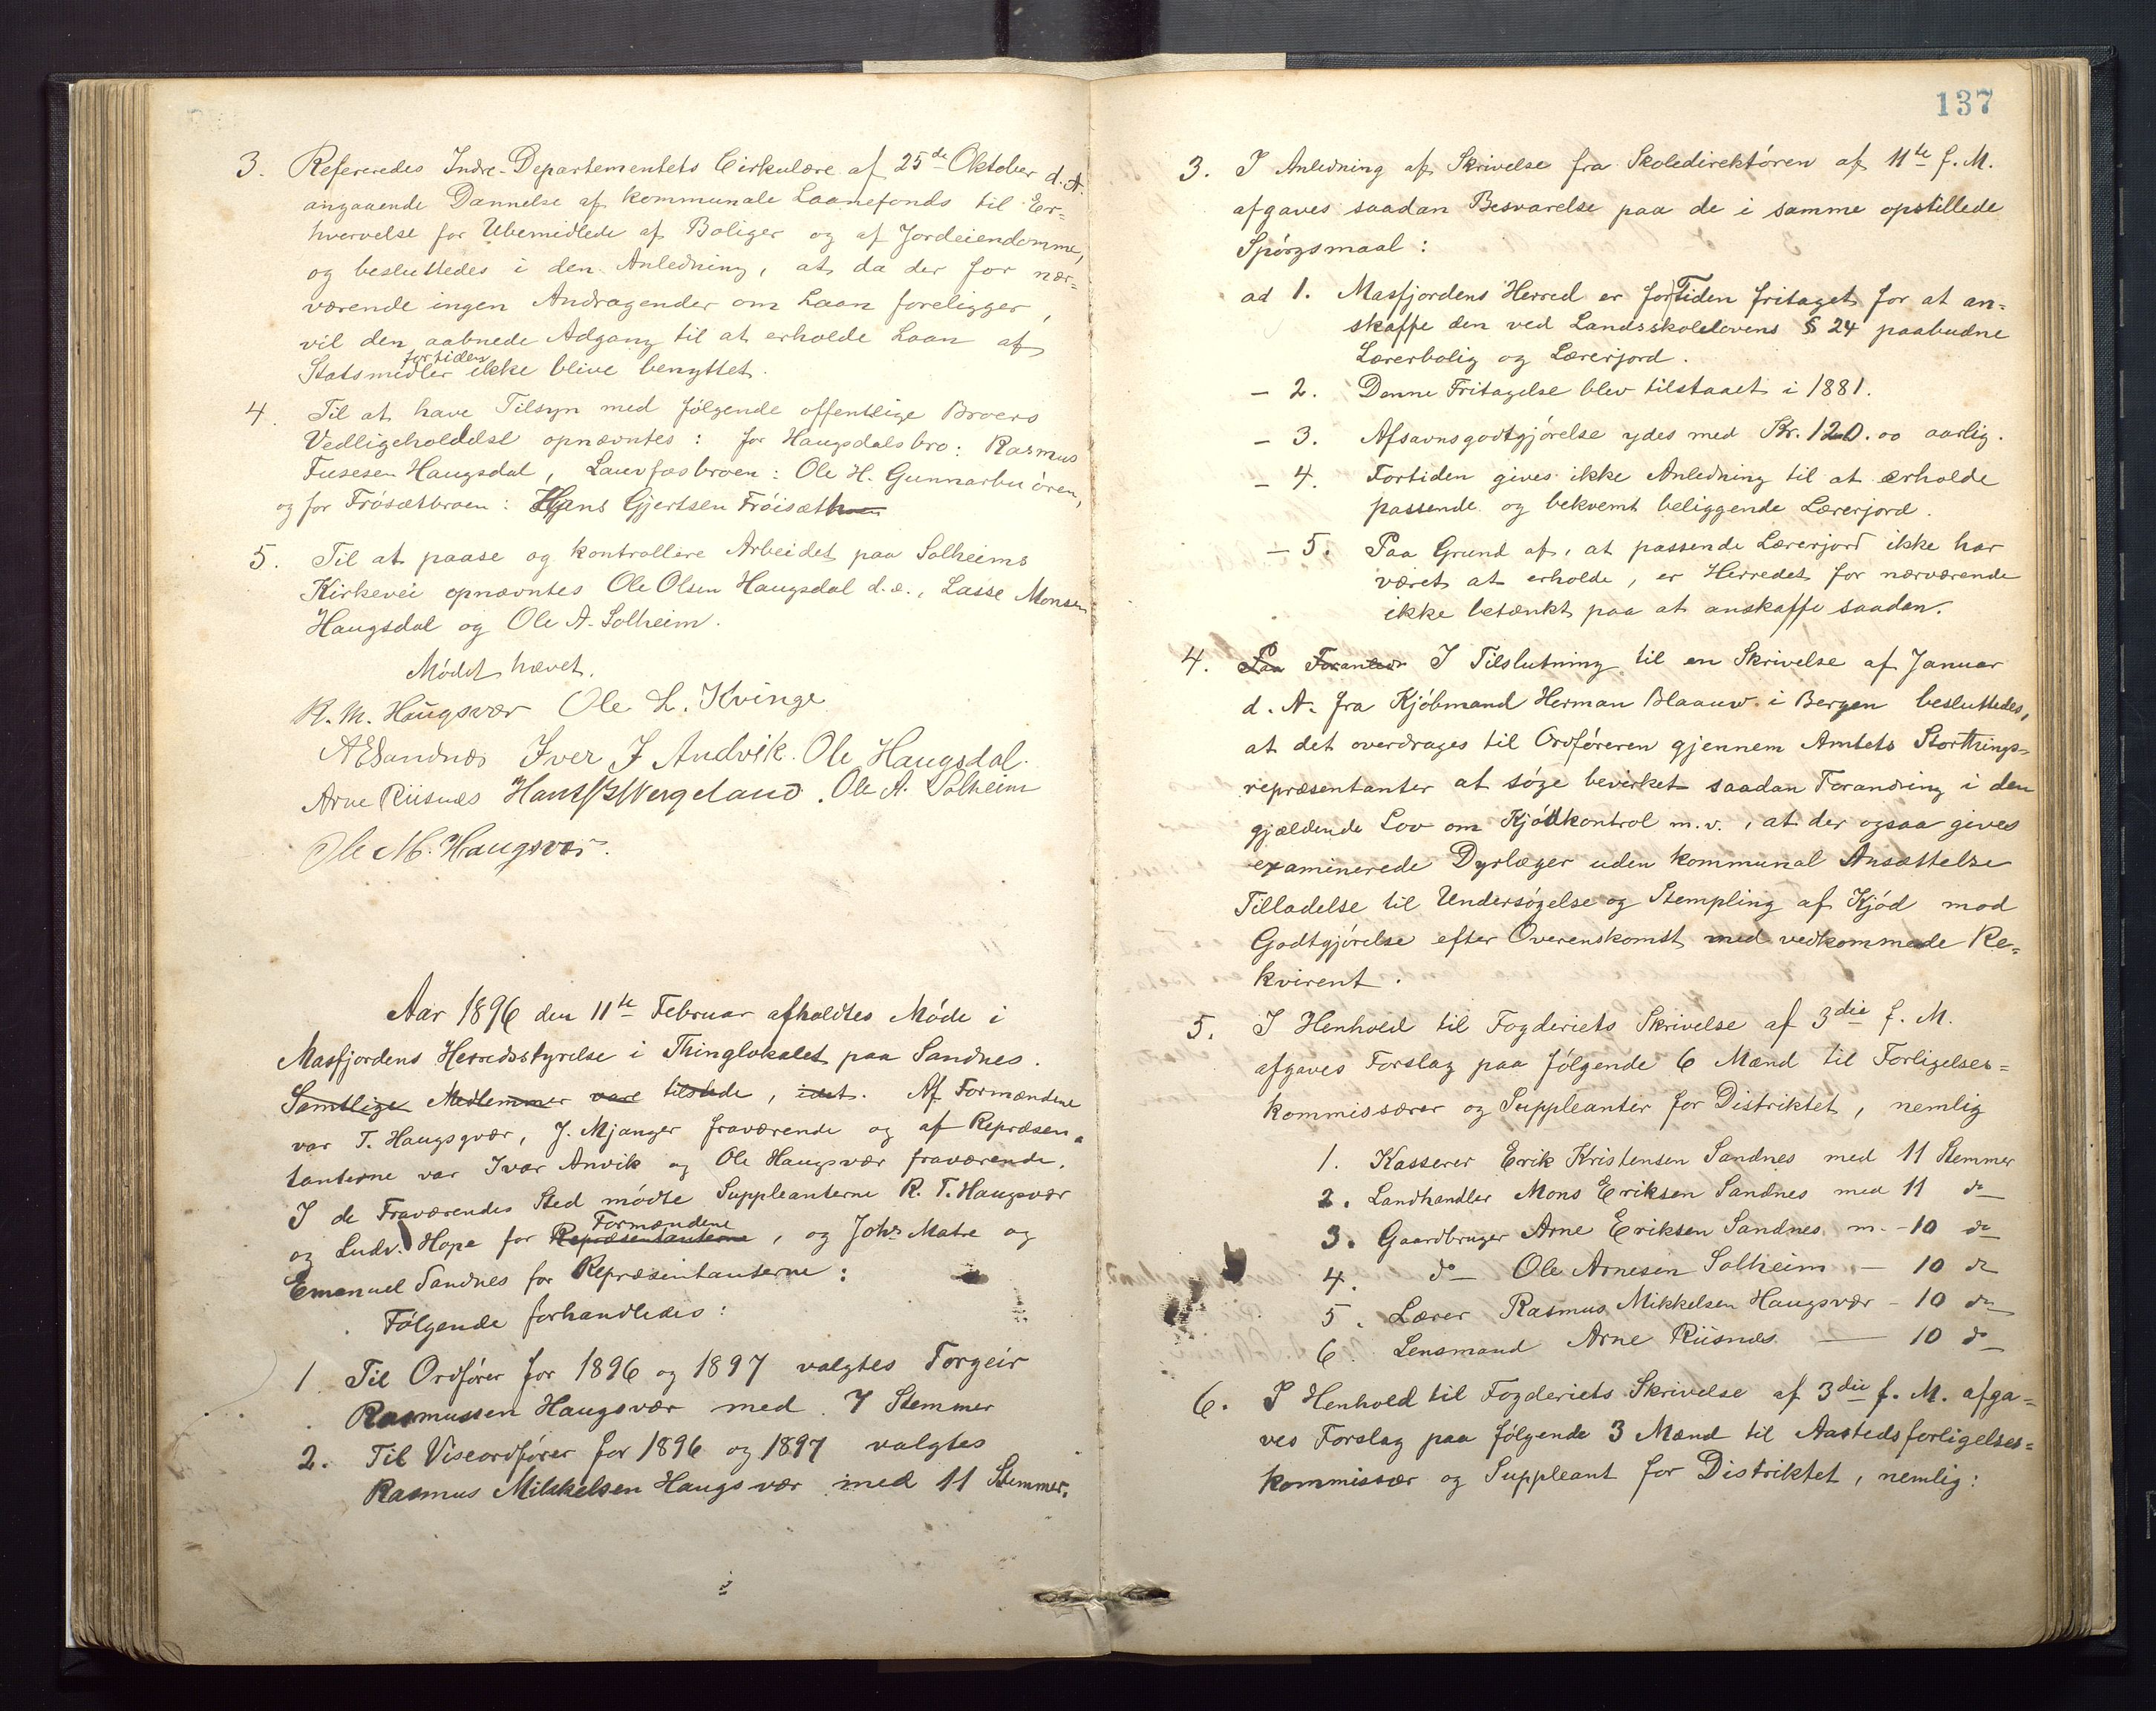 3. Refereredes Indre-Departementets Cirkulære af 25de Oktober d. A.
angaaende Dannelse af kommunale Laanefonds til Er=
hvervelse for Ubemidlede af Boliger og af Jordeiendomme,
og besluttedes i den Anledning, at da der for nær=
værende ingen Andragender om Laan foreligger,
vil den aabnede Adgang til at erholde Laan af
fortiden
Statsmidler ikke blive benyttet.
4. Til at have Tilsyn med følgende offentlige Broers
Vedligeholdelse opnævntes: for Haugsdalsbro: Rasmus
Fusesen Haugsdal, Lauvfosbroen: Ole H. Gunnarbuøren,
og for Frøsætbroen: Hans Gjertsen Frøisæt
5. Til at paase og kontrollere Arbeidet paa Solheims
Kirkevei opnævntes Ole Olsen Haugsdal d.æ., Lasse Monsen
Haugsdal og Ole A. Solheim.
Mødet hævet.
R. M. Haugsvær Ole L. Kvinge
A E Sandnæs Iver J Andvik. Ole Haugsdal.
Arne Riisnæs Hans Wergeland. Ole A. Solheim
Ole M. Haugsvær.
Aar 1896 den 11te Februar afholdtes Møde i
Masfjordens Herredsstyrelse i Thinglokalet paa Sandnes.
Samtlige Medlemmer vare tilstede, idet. Af Formændene
var T. Haugsgvær, J. Mjanger fraværende og af Repræsen=
tanterne var Ivar Anvik og Ole Haugsvær fraværende.
I de Fraværendes Sted mødte Suppleanterne R. T. Haugsvær
Formændene
og Ludv. Hope for Repræsentanterne, og Johs Matre og
Emanuel Sandnes for Repræsentanterne:
Følgende forhandledes:
1. Til Ordfører for 1896 og 1897 valgtes Torgeir
Rasmussen Haugsvær med 7 Stemmer
2. Til Viseordfører for 1896 og 1897 valgtes
Rasmus Mikkelsen Haugsvær med 11 Stemmer.
137
3. I Anledning af Skrivelse fra Skoledirektøren af 11te f. M.
afgaves saadan Besvarelse paa de i samme opstillede
Spørgsmaal:
ad 1. Masfjordens Herred er for Tiden fritaget for at an=
skaffe den ved Landsskolelovens § 24 paabudne
Lærerbolig og Lærerjord.
– 2. Denne Fritagelse blev tilstaaet i 1881.
– 3. Afsavnsgodtgjørelse ydes med Kr. 120.00 aarlig.
– 4. Fortiden gives ikke Anledning til at ærholde
passende og bekvemt beliggende Lærerjord.
– 5. Paa Grund af, at passende Lærerjord ikke har
været at erholde, er Herredet for nærværende
ikke betænkt paa at anskaffe saadan.
4. Paa Foranled I Tilslutning til en Skrivelse af Januar
d. A. fra Kjøbmand Herman Blaauw i Bergen besluttedes,
at det overdrages til Ordføreren gjennem Amtets Storthings=
repræsentanter at søge bevirket saadan Forandring i den
gjældende Lov om Kjødkontrol m.v., at der ogsaa gives
examinerede Dyrlæger uden kommunal Ansættelse
Tilladelse til Undersøgelse og Stempling af Kjød mod
Godtgjørelse efter Overenskomst med vedkommende Re=
kvirent.
5. I Henhold til Fogderiets Skrivelse af 3die f. M.
afgaves Forslag paa følgende 6 Mænd til Forligelses=
kommissærer og Suppleanter for Distriktet, nemlig
1. Kasserer Erik Kristensen Sandnes med 11 Stemmer
2. Landhandler Mons Eriksen Sandnes med 11 do
3. Gaardbruger Arne Eriksen Sandnes m. – 10 do
4. do – Ole Arnesen Solheim – 10 do
5. Lærer Rasmus Mikkelsen Haugsvær – 10 do
6. Lensmand Arne Riisnæs — 10 do
6. I Henhold til Fogderiets Skrivelse af 3die f. M. afga=
ves Forslag paa følgende 3 Mænd til Aastedsforligelses=
kommissær og Suppleant for Distriktet, nemlig: